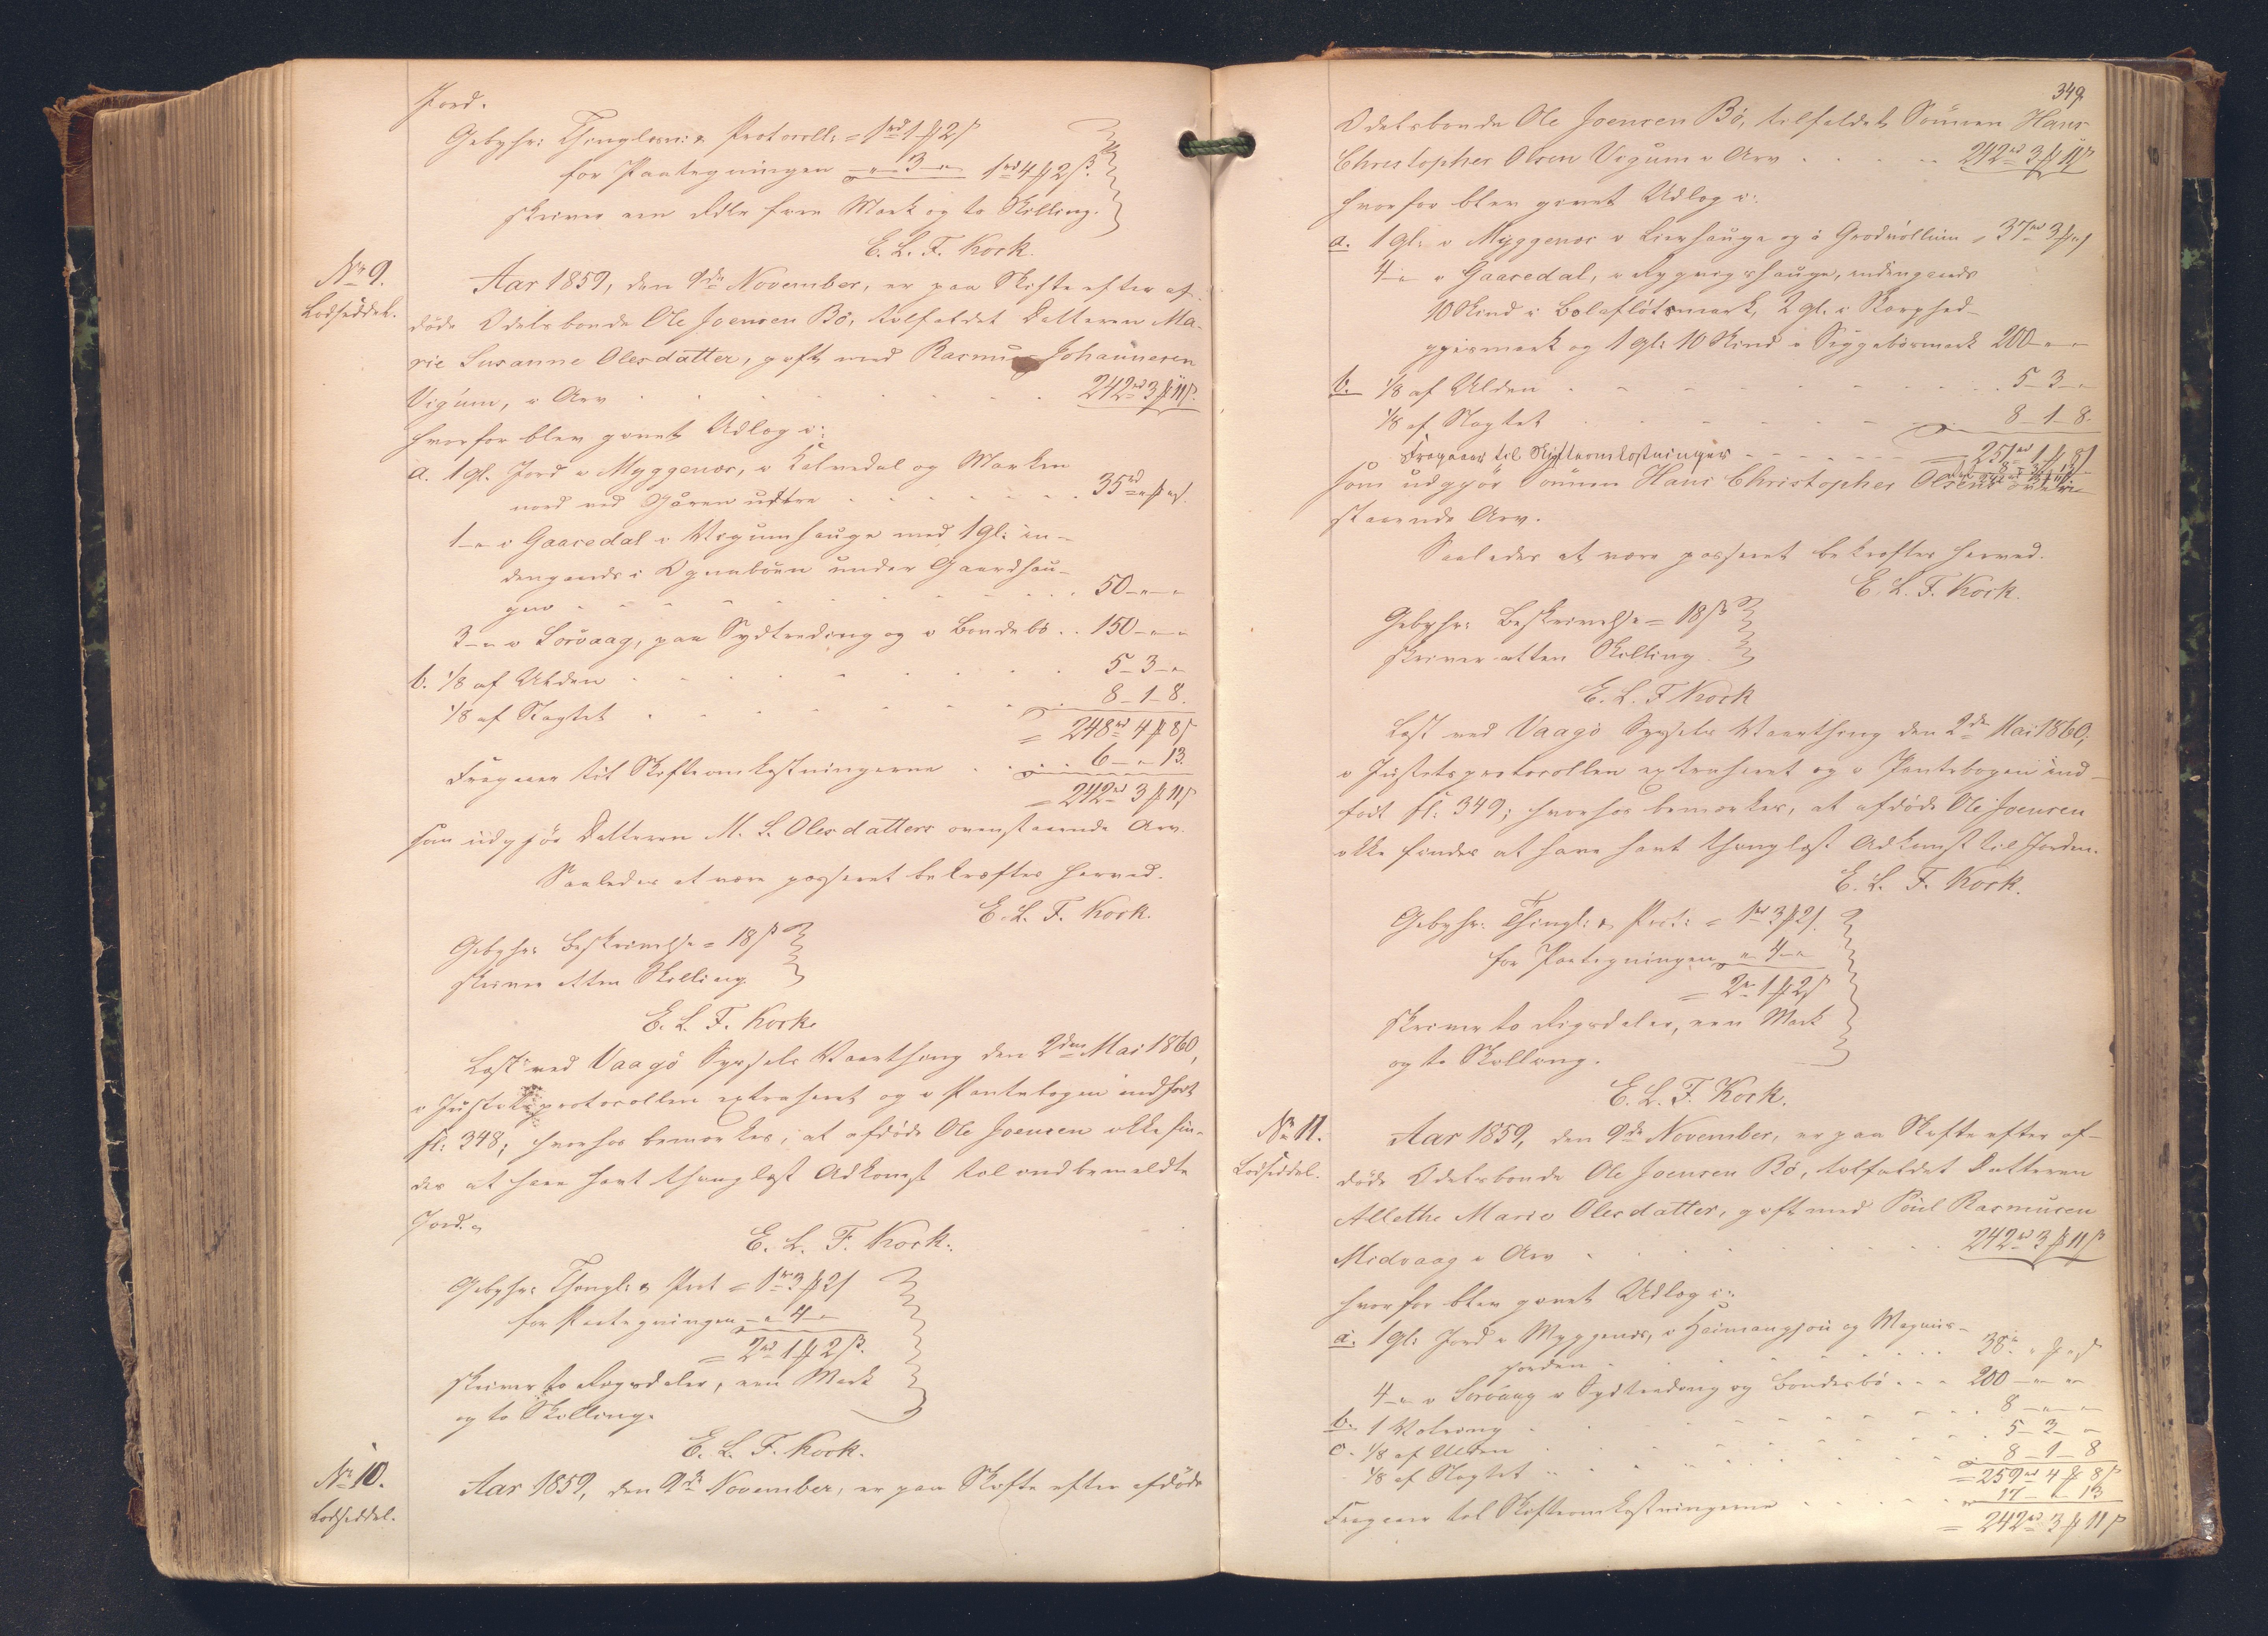 Jord.
Gebyhr: Thinglæsn: & Protocoll: = 1rd 1 ℔ 2 ß
for Paategningen „ – 3 – „ 1rd 4 ℔ 2 ß.
skriver een Rdlr fire Mark og to Skilling.
E. L. F. Kock.
No 9.
Lodseddel.
Aar 1859, den 9de November, er paa Skifte efter af-
døde Odelsbonde Ole Joensen Bö, tilfaldet Datteren Ma-
rie Susanne Olesdatter, gift med Rasmus Johannesen
Vigum, i Arv . . . . . 242rd 3 ℔ 11 ß.
hvorfor blev givet Udlæg i:
a. 1 gl. Jord i Myggenæs, i Kalvedal og Marken
nord ved Gaaren udtræ . . . . 35rd „ ℔ „ ß.
1 – „ i Gaasedal i Vigumhauge med 1 gl: in-
dengaards i Ognaböen under Gaardhau-
gen . . . . 50 – „ – „
3 – „ i Sörvaag, paa Sydtreding og i Bondebö . . 150 – „ – „
b. 1/8 af Ulden . . . . 5 – 3 – „
1/8 af Slagtet . . . . 8 – 1 – 8.
= 248rd 4 ℔ 8 ß
Fragaaer til Skifteomkostningerne . . . 6 – „ – 13.
= 242rd 3 ℔ 11 ß
som udgjör Datteren M. S. Olesdatters ovenstaaende Arv.
Saaledes at være passeret bekræftes herved.
E. L. F. Kock.
Gebyhr: Beskrivelse = 18 ß
skriver atten Skilling.
E. L. F. Kock.
Læst ved Vaagö Syssels Vaarthing den 2den Mai 1860,
i Justitsprotocollen extraheret og i Pantebogen indfört
fl: 348; hvorhos bemærkes, at afdöde Ole Joensen ikke fin-
des at have havt thinglæst Adkomst til ommeldte
Jord.
E. L. F. Kock.
Gebyhr: Thingl: & Prot = 1rd 3 ℔ 2 ß
for Paategningen „ – 4 – „
= 2rd 1 ℔ 2 ß.
skriver to Rigsdaler, een Mark
og to Skilling.
E. L. F. Kock.
No 10.
Lodseddel.
Aar 1859, den 9de November, er paa Skifte efter afdöde
349.
Odelsbonde Ole Joensen Bö, tilfaldet Sönnen Hans
Christopher Olsen Vigum i Arv . . . . 242rd 3 ℔ 11 ß
hvorfor blev givet Udlæg i:
a. 1 gl: i Myggenæs i Lierhauge og i Grodvöllum „ 37rd 3 ℔ „ ß
4 – „ i Gaasedal, i Rygvigshauge, indengaards
10 Skind i Bolaflötsmark, 2 gl. i Skarphed-
ginsmark og 1 gl: 10 Skind i Siggabösmark 200 – „ – „
b. 1/8 af Ulden . . . . 5 – 3 – „
1/8 af Slagtet . . . . 8 – 1 – 8.
251rd 1 ℔ 8 ß
Fragaaer til Skifteomkostninger . . . .
som udgjör Sönnen Hans Christopher Olsens oven-
staaende Arv.
Saaledes at være passeret bekræftes herved.
E. L. F. Kock.
Gebyhr: Beskrivelse = 18 ß
skriver atten Skilling.
E. L. F. Kock
Læst ved Vaagö Syssels Vaarthing den 2de Mai 1860;
i Justitsprotocollen extraheret og i Pantebogen ind-
fört fl: 349; hvorhos bemærkes, at afdöde Ole Joensen
ikke findes at have havt thinglæst Adkomst til Jorden.
E. L. F. Kock.
Gebyhr: Thingl: & Prot: = 1rd 3 ℔ 2 ß.
for Paategningen „ – 4 – „
= 2rd 1 ℔ 2 ß
skriver to Rigsdaler, een Mark
og to Skilling.
E. L. F. Kock.
No 11.
Lodseddel.
Aar 1859, den 9de November, er paa Skifte efter af-
döde Odelsbonde Ole Joensen Bö, tilfaldet Datteren
Allethe Marie Olesdatter, gift med Poul Rasmusen
Midvaag i Arv . . . . 242rd 3 ℔ 11 ß
hvorfor blev givet Udlæg i:
a. 1 gl: Jord i Myggenæs, i Heimangjou og Magnus-
jorden . . . . 38rd „ ℔ „ ß
4 – „ i Sörvaag i Sydtreding og Bondesbö . . . 200 – „ – „
b. 1 . . . . 8 – „ – „
c. 1/8 af Ulden . . . . 5 – 3 – „
1/8 af Slagtet . . . . 8 – 1 – 8
= 259rd 4 ℔ 8 ß
Fragaaer til Skifteomkostningerne . . . . 17 – 1 – 13
= 242rd 3 ℔ 11 ß